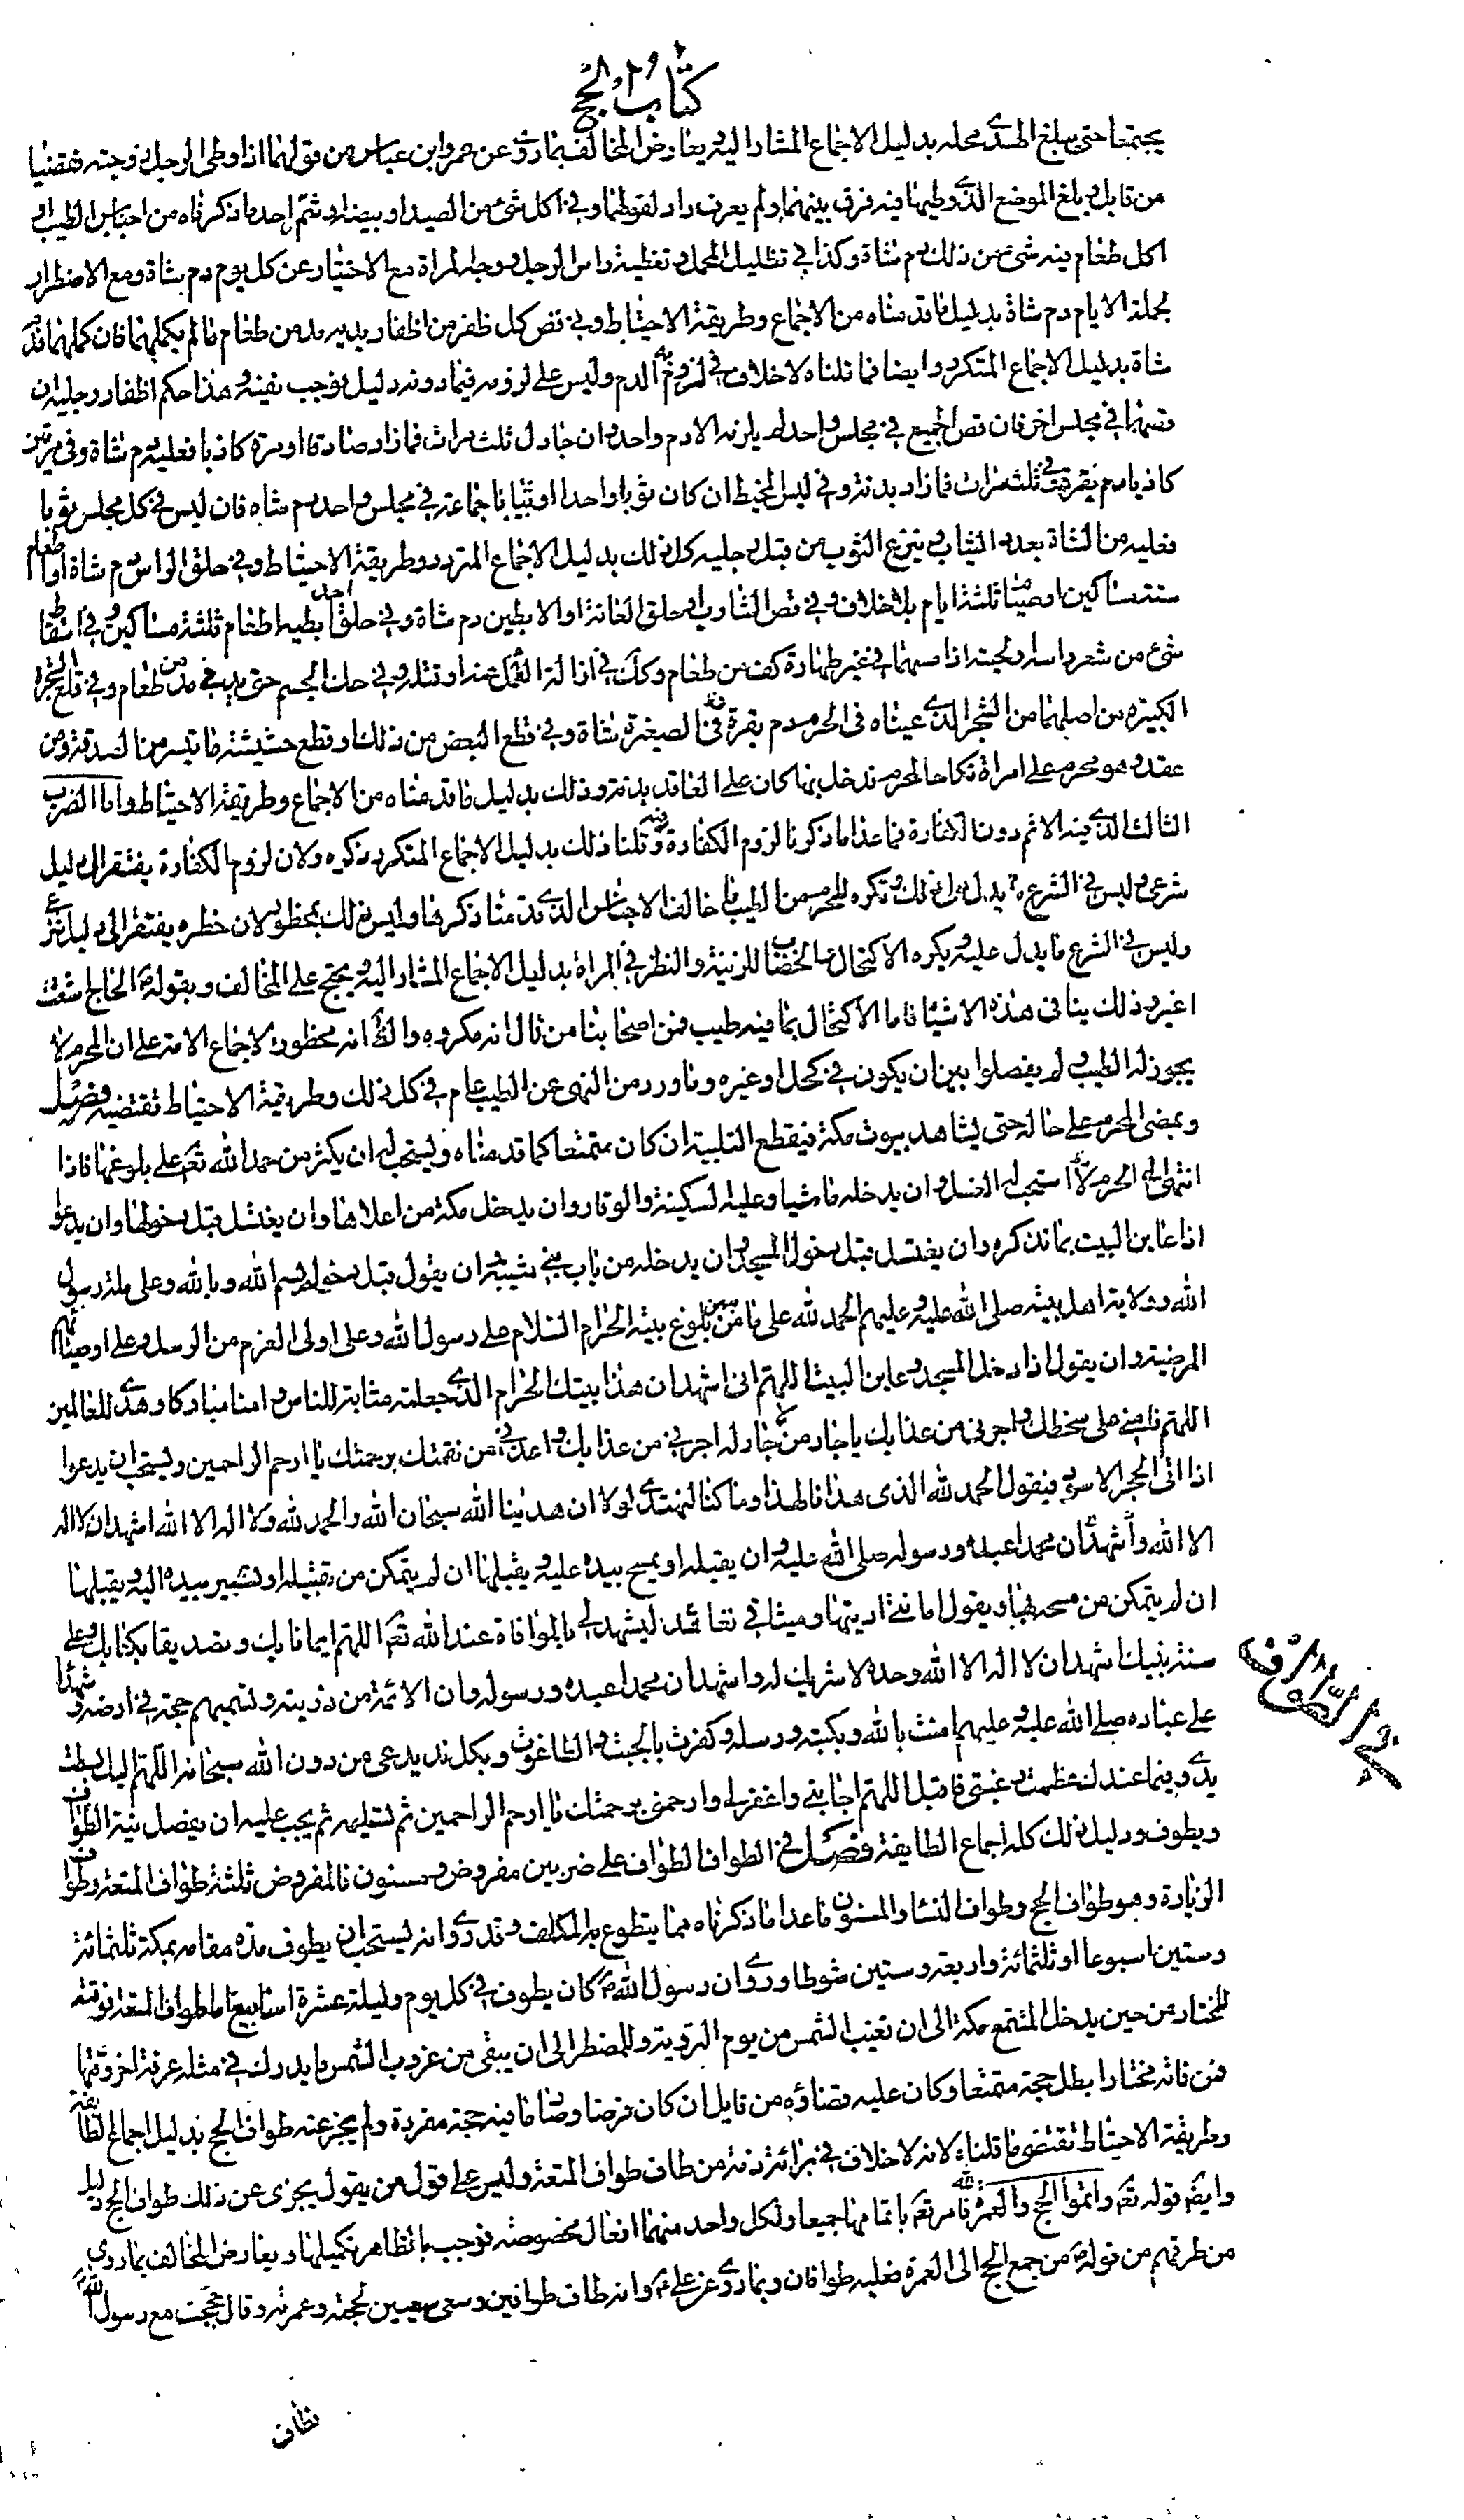 كتاب الحج
يجتمعا حتى يبلغ الهدى محله بدليل الاجماع المشار اليه يعارض المخالف بما روى عن عمر وابن عباس من قولهما اذا وطى الرجل زوجته فقضيا
من قابل وبلغ الموضع الذى وطيها فيه فرق بينهما ولم يعرف راد لقولهما وفى اكل شئ من الصيد او بيضه او شم احد ما ذكرناه من اجناس الطيب او
اكل طعام فيه شئ من ذلك دم شاة وكذا فى تظليل المحمل وتغطية راس الرجل ووجه المراة مع الاختيار عن كل يوم دم شاة ومع الاضطرار
لجملة الايام دم شاة بدليل ما قدمناه من الاجماع وطريقة الاحتياط وفى قص كل ظفر من اظفار يديه مد من طعام ما لم يكملهما فان كملهما فدم
شاة بدليل الاجماع المتكرر وايضا فما قلناه لا خلاف فى لزوم الدم به وليس على لزومه فيما دونه دليل يوجب يقينه وهذا حكم اظفار رجليه ان
قصهما فى مجلس اخر فان قص الجميع فى مجلس واحد لم يلزمه الا دم واحد وان جادل ثلث مرات فما زاد صادقا او مرة كاذبا فعليه دم شاة وفى مرتين
كاذبا دم بقرة وفى ثلث مرات فما زاد بدنة وفى لبس المخيط ان كان ثوبا واحدا او ثيابا جماعة فى مجلس واحد دم شاة فان لبس فى كل مجلس ثوبا
فعليه من الشاة بعدد الثياب وينزع الثوب من قبل رجليه كل ذلك بدليل الاجماع المتردد وطريقة الاحتياط وفى حلق الراس دم شاة او اطعام
ستة مساكين او صيام ثلثة ايام بلا خلاف وفى قص الشارب او حلق العانة او الابطين دم شاة وفى حلق احد ابطيه اطعام ثلثة مساكين وفى اسقاط
شئ من شعر راسه ولحيته اذا مسهما فى غير طهارة كف من طعام وكذلك فى ازالة القمل عنه او قتله وفى حك الجسم حتى يدمى مد من طعام وفى قلع الشجرة
الكبيرة من اصلها من الشجر الذى عيناه فى الحرم دم بقرة وفى الصغيرة شاة وفى قطع البعض من ذلك او قطع حشيشه ما تيسر من الصدقة ومن
عقد وهو محرم على امراة نكاحا لمحرم فدخل بها كان على العاقد بدنة وذلك بدليل ما قدمناه من الاجماع وطريقة الاحتياط واما الضرب
الثالث الذى فيه الاثم دون الكفارة فما عدا ما ذكرنا لزوم الكفارة فيه وقلنا ذلك بدليل الاجماع المتكرر ذكره ولان لزوم الكفارة يفتقر الى دليل
شرعى وليس فى الشرع ما يدل على ذلك وتكره للمحرم من الطيب ما خالف الاجناس الذى قدمنا ذكرها وليس ذلك بمحظور لان حظره يفتقر الى دليل شرعى
وليس فى الشرع ما يدل عليه ويكره الاكتحال والخضاب للزينة والنظر فى المراة بدليل الاجماع المشار اليه ويحتج على المخالف وبقوله ع الحاج اشعث
اغبر وذلك ينافى هذه الاشياء فاما الاكتحال بما فيه طيب فمن اصحابنا من قال انه مكروه والظ انه محظور لاجماع الامة على ان المحرم لا
يجوز له الطيب ولم يفصلوا بين ان يكون فى كحل او غيره وما ورد من النهى عن الطيب عام فى كل ذلك وطريقة الاحتياط تقتضيه فصل
ويمضى المحرم على حاله حتى يشاهد بيوت مكة فيقطع التلبية ان كان متمتعا كما قدمناه ويستحب له ان يكثر من حمد الله تعم على بلوغها فاذا
انتهى الى الحرم استحب له الغسل وان يدخله ماشيا وعليه السكينة والوقار وان يدخل مكة من اعلاها وان يغتسل قبل دخولها وان يدعو
اذا عاين البيت بما نذكره وان يغتسل قبل دخول المسجد وان يدخله من باب بنى شيبة وان يقول قبل دخوله بسم الله وبالله وعلى ملة رسول
الله وولاية اهل بيته صلى الله عليه وعليهم الحمد لله على ما من به من بلوغ بيته الحرام السلام على رسول الله وعلى اولى العزم من الرسل وعلى اوصيائهم
المرضية وان يقول اذا دخل المسجد وعاين البيت اللهم انى اشهد ان هذا بيتك الحرام الذى جعلته مثابة للناس وامنا مباركا وهدى للعالمين
اللهم فامنى من سخطك واجرنى من عذابك يا جار من لا جار له اجرنى من عذابك واعذنى من نقمتك برحمتك يا ارحم الراحمين ويستحب ان يدعوا
اذا اتى الحجر الاسود فيقول الحمد لله الذى هدانا لهذا وما كنا لنهتدى لولا ان هدينا الله سبحان الله والحمد لله ولا اله الا الله اشهد ان لا اله
الا الله وأشهد أن محمدا عبده ورسوله صلى الله عليه وان يقبله او يمسح بيده عليه ويقبلها ان لم يتمكن من تقبيله او يشير بيده اليه ويقبلها
ان لم يتمكن من مسحه بها ويقول امانتى اديتها وميثاقى تعاهدته ليشهد لى بالموافاة عند الله تعم اللهم ايمانا بك وتصديقا بكتابك وعلى
سنة نبيك اشهد ان لا اله الا الله وحده لا شريك له واشهد ان محمدا عبده ورسوله وان الائمة من ذريته وتسميهم حجته فى ارضه وشهدائه
على عباده صلى الله عليه وعليهم امنت بالله وبكتبه ورسله وكفرت بالجبت والطاغوت وبكل ند يدعى من دون الله سبحانه اللهم اليك بسطت
يدى وفيما عندك عظمت رغبتى فاقبل اللهم اجابتى واغفر لى وارحمنى برحمتك يا ارحم الراحمين ثم يستلمه ثم يجب عليه ان يفصل نية الطواف
ويطوف ودليل ذلك كله اجماع الطايفة فصل فى الطواف الطواف على ضربين مفروض ومسنون فالمفروض ثلثة طواف المتعة وطواف
الزيارة وهو طواف الحج وطواف النساء والمسنون ما عدا ما ذكرناه مما يتطوع به المكلف وقد روى انه يستحب ان يطوف مدة مقامه بمكة ثلثمائة
وستين اسبوعا او ثلثمائة واربعة وستين شوطا وروى ان رسول الله ص كان يطوف فى كل يوم وليلة عشرة اسابيع اما طواف المتعة فوقته
للمختار من حين يدخل المتمتع مكة الى ان تغيب الشمس من يوم التروية وللمضطر الى ان يبقى من غروب الشمس ما يدرك فى مثله عرفة اخر وقتها
فمن فاته مختارا بطل حجه متمتعا وكان عليه قضاؤه من قابل ان كان فرضا وصار ما فيه حجة مفردة ولم يجز عنه طواف الحج بدليل اجماع الطائفة
وطريقة الاحتياط تقتضى ما قلناه لانه لا خلاف فى برائة ذمة من طاف طواف المتعة وليس على قول من يقول يجزى عن ذلك طواف الحج دليل
وايض قوله تعم واتموا الحج والعمرة لله فامر تعم باتمامهما جميعا ولكل واحد منهما افعال مخصوصة فوجب بالظاهر تكميلها ويعارض المخالف بما روى
من طرقهم من قوله ص من جمع الحج الى العمرة فعليه طوافان وبما روى عن على ع وانه طاف طوافين وسعى سعيين لحجته وعمرته وقال حججت مع رسول الله
فى الطواف
فطاف